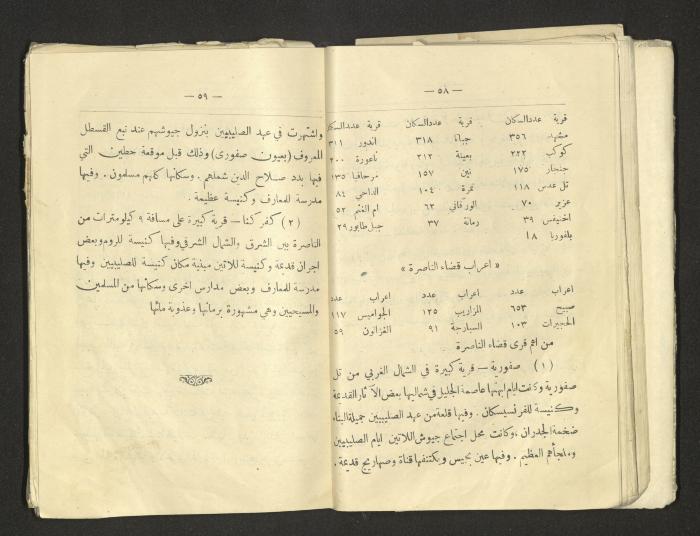 — ٥٨ —
قرية عددالسكان قرية عددالسكان قرية عددالسكان
مشهد ٣٥٦ جباتا ٣١٨ اندور ٣١١
كوكب ٢٢٢ بعينة ٢١٢ ناعورة ٢٠٠
جنجار ١٧٥ نين ١٥٧ مرحافيا ١٣٥
تل عدس ١١٨ تمرة ١٠٤ الداحي ٨٤
عزير ٧٠ الورقاني ٦٣ ام الغنم ٥٢
اخنيفس ٣٩ رمانة ٣٧ جبل طابور ٢٩
بلفوريا ١٨
« اعراب قضاء الناصرة »
اعراب عدد اعراب عدد اعراب عدد
صبيح ٦٥٣ المزاريب ١٢٥ الجواميس ١١٧
الحجيرات ١٠٣ السبارجة ٩١ الغزالون ٥٩
من اهم قرى قضاء الناصرة
(١) صفورية – قرية كبيرة في الشمال الغربي من تل
صفورية وكانت ايام ابهتها عاصمة الجليل في شماليها بعض الآثار القديمة
وكنيسة للفرنسيسكان . وفيها قلعة من عهد الصليبيين جميلة البناء
ضخمة الجدران ،وكانت محل اجتماع جيوش اللاتين ايام الصليبيين
وملجأهم العظيم . وفيها عين بجيس ويكتنفها قناة وصهاريج قديمة .
— ٥٩ —
واشتهرت في عهد الصليبيين بنزول جيوشهم عند نبع القسطل
المعروف (بعيون صفوري) وذلك قبل موقعة حطين التي
فيها بدد صلاح الدين شملهم . وسكانها كلهم مسلمون . وفيها
مدرسة للمعارف وكنيسة عظيمة .
(٢) كفر كنا – قرية كبيرة على مسافة ٩ كيلومترات من
الناصرة بين الشرق والشمال الشرقي وفيها كنيسة للروم وبعض
اجران قديمة وكنيسة للاتين مبنية مكان كنيسة للصليبيين وفيها
مدرسة للمعارف وبعض مدارس اخرى وسكانها من المسلمين
والمسيحيين وهي مشهورة برمانها وعذوبة مائها